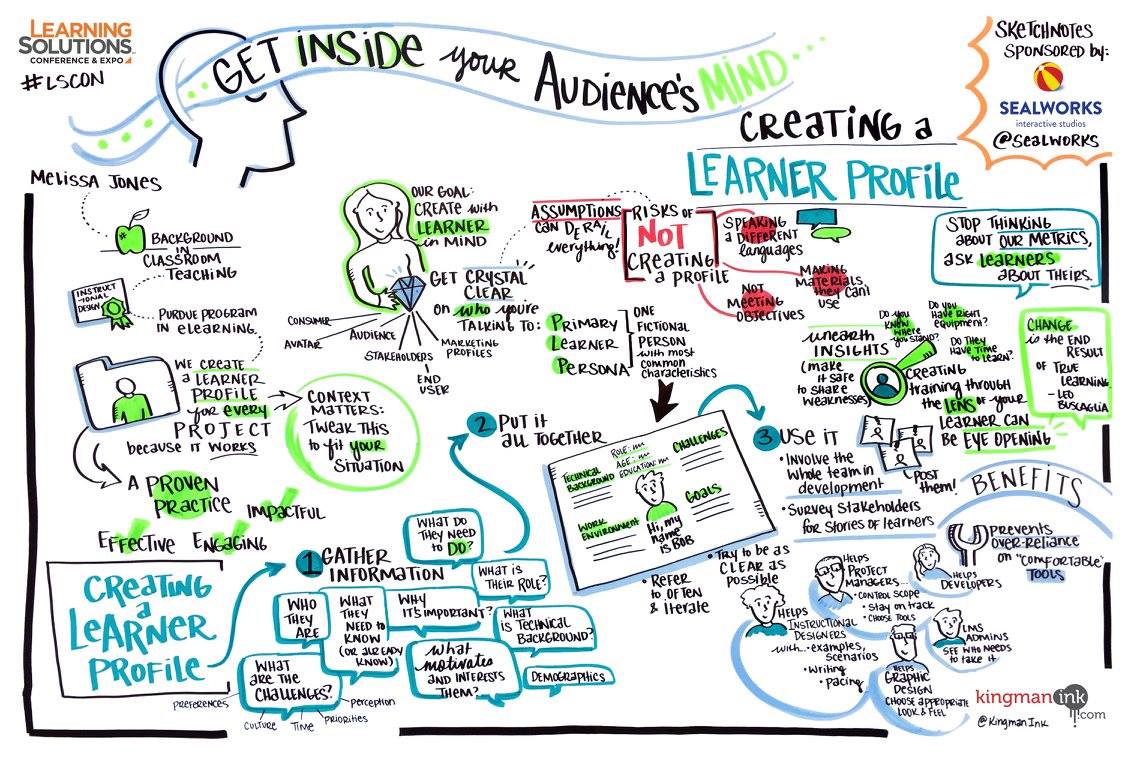 LEARNING
SOLUTIONS
CONFERENCE & EXPO
#LSCON
GET INSIDE your AUDIENCE'S MIND...
CREATING a
LEARNER PROFILE
SKETCHNOTES
SPONSORED by:
SEALWORKS
interactive studios
@SEALWORKS
MELISSA JONES
BACKGROUND
IN
CLASSROOM
TEACHING
INSTRUCT
-IONAL
DESIGN
PURDUE PROGRAM
IN ELEARNING
WE CREATE
a LEARNER
PROFILE
for every
PROJECT
because IT WORKS
CONTEXT
MATTERS:
TWEAK THIS
to fit YOUR
SITUATION
A PROVEN
PRACTICE
IMPACTFUL
EFFECTIVE
ENGAGING
OUR GOAL:
CREATE with
LEARNER
in MIND
GET CRYSTAL
CLEAR
on who you're
TALKING TO:
CONSUMER
AVATAR
AUDIENCE
STAKEHOLDERS
END
USER
MARKETING
PROFILES
PRIMARY
LEARNER
PERSONA
ONE
FICTIONAL
PERSON
with most
common
characteristics
ASSUMPTIONS
CAN DERAIL
everything!
RISKS OF
NOT
CREATING
a PROFILE
SPEAKING
a DIFFERENT
languages
MAKING
MATERIALS
they CAN'T
USE
NOT
MEETING
OBJECTIVES
STOP THINKING
ABOUT OUR METRICS,
ASK LEARNERS
ABOUT THEIRS.
unearth
INSIGHTS
(make
it safe
to share
weaknesses)
DO YOU
KNOW WHERE
YOU STAND?
DO YOU
HAVE RIGHT
equipment?
DO THEY
HAVE TIME
to LEARN?
CREATING
training through
the LENS of your
LEARNER CAN
BE EYE OPENING
CHANGE
is the END
RESULT
OF TRUE
LEARNING
- LEO
BUSCAGLIA
CREATING
a
LEARNER
PROFILE
1 GATHER
INFORMATION
WHO
THEY
ARE
WHAT
THEY
NEED to
KNOW
(OR ALREADY
KNOW)
WHY
IT'S IMPORTANT?
WHAT DO
THEY NEED
to DO?
WHAT IS
THEIR ROLE?
WHAT
IS TECHNICAL
BACKGROUND?
WHAT
ARE THE
CHALLENGES?
what
motivates
AND INTERESTS
THEM?
DEMOGRAPHICS
PREFERENCES
CULTURE
TIME
PRIORITIES
perception
2 PUT it
all TOGETHER
TECHNICAL
BACKGROUND
ROLE:
AGE:
EDUCATION:
CHALLENGES
WORK
ENVIRONMENT
GOALS
Hi, my
name
is BOB
• REFER
to OFTEN
& iterate
• TRY to be as
CLEAR as
possible
3 USE iT
• INVOLVE the
Whole team in
development
• SURVEY STAKEHOLDERS
for STORIES of learners
POST
them!
BENEFITS
PREVENTS
over-reliance
on "COMFORTABLE"
TOOLS
HELPS
PROJECT
MANAGERS...
• CONTROL SCOPE
• Stay on track
• CHOOSE TOOLS
HELPS
DEVELOPERS
HELPS
INSTRUCTIONAL
DESIGNERS
with... • examples,
scenarios
• Writing
• pacing
HELPS
GRAPHIC
DESIGN
CHOOSE APPROPRIATE
LOOK & FEEL
LMS
ADMINS
SEE WHO NEEDS
to take it
kingman ink
.com
@KingmanInk